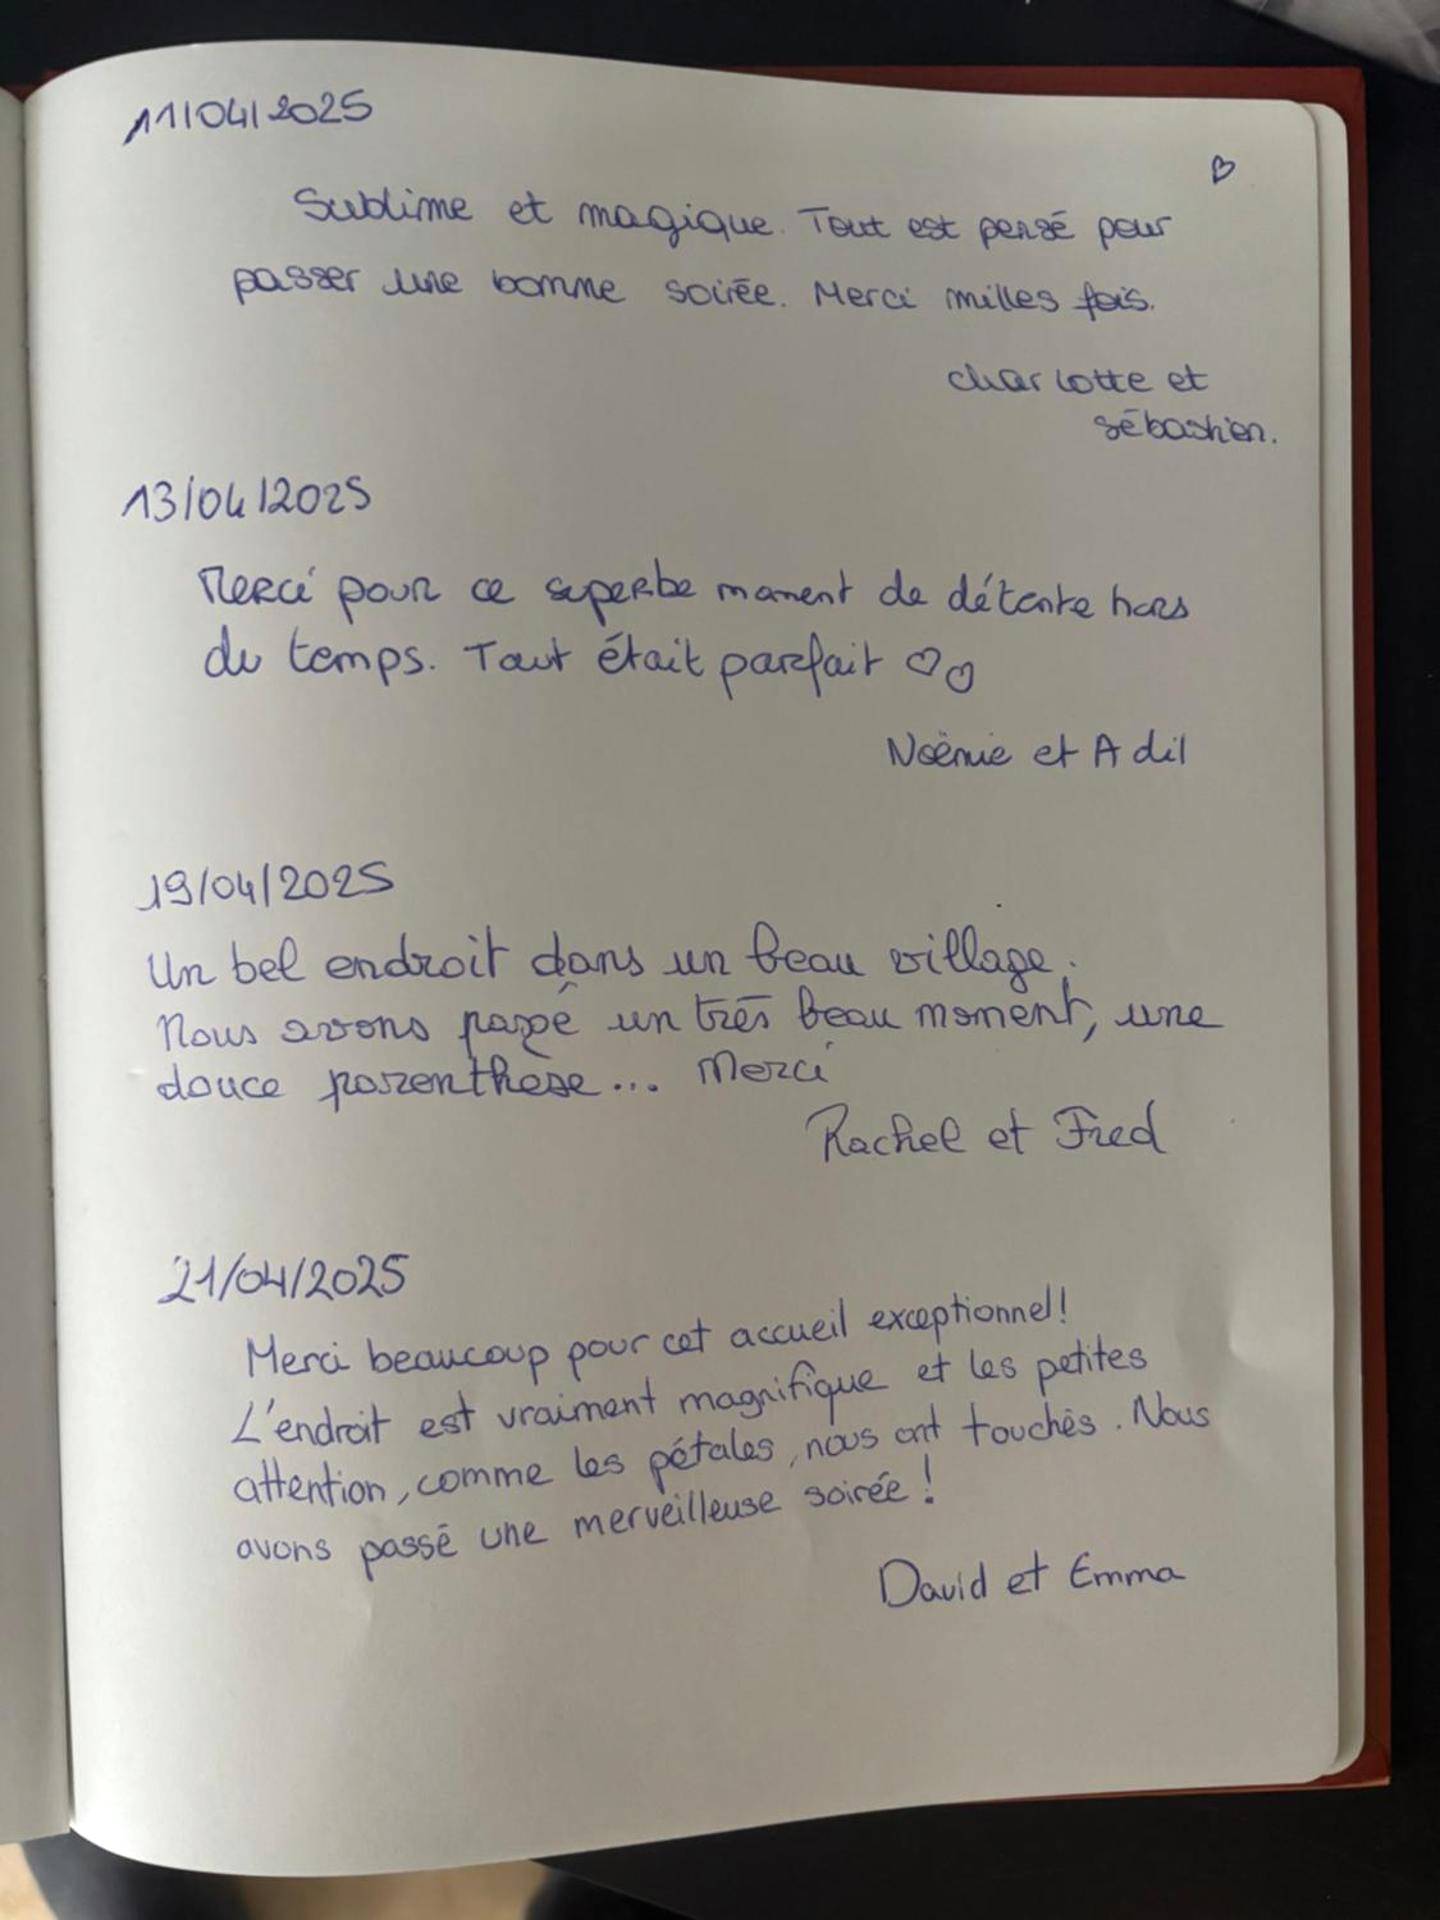 11/04/2025
Sublime et magique. Tout est pensé pour
passer une bonne soirée. Merci milles fois.
Charlotte et
Sébastien.
13/04/2025
Merci pour ce superbe moment de détente hors
du temps. Tout était parfait ♡♡
Noémie et Adil
19/04/2025
Un bel endroit dans un beau village.
Nous avons passé un très beau moment, une
douce parenthèse... Merci
Rachel et Fred
21/04/2025
Merci beaucoup pour cet accueil exceptionnel!
L'endroit est vraiment magnifique et les petites
attention, comme les pétales, nous ont touchés. Nous
avons passé une merveilleuse soirée!
David et Emma